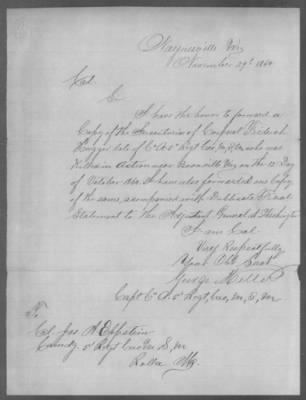 Waynesville Mo
November 29th 1864
Col.
Sir
I have the honor to forward a
Copy of the Inventories of Corporal
late of Co. 5th Regt Cav, M, S, M, who was
Killed in Action near Mo on the 12 Day
of October 1864. I have also forwarded one Copy
of the same, accompanied with Dublicate Final
Statement to the Adjutant General at Washington
I am Col
Very Respectfully
Your Obt Servt
George Miller
Capt Co 5th Regt, Cav, M, S, M
To
Col. Jos. A Eppstein
Comdg. 5th Regt Cav M. S. M
Rolla Mo.